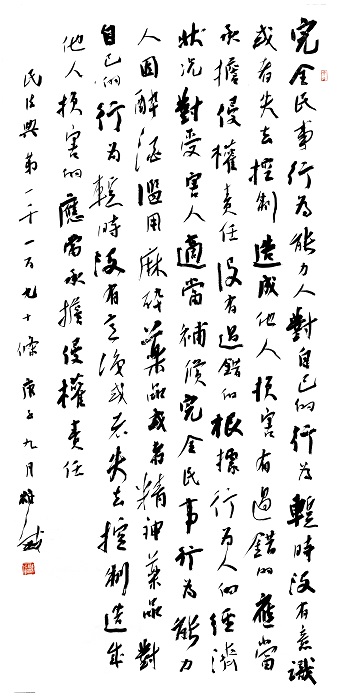 完全民事行為能力人對自己的行為暫時沒有意識
或者失去控制造成他人損害有過錯的應當
承擔侵權責任沒有過錯的根據行為人的經濟
狀況對受害人適當補償完全民事行為能力
人因醉酒濫用麻醉藥品或者精神藥品對
自己的行為暫時沒有意識或者失去控制造成
他人損害的應當承擔侵權責任
民法典第一千一百九十條庚子九月